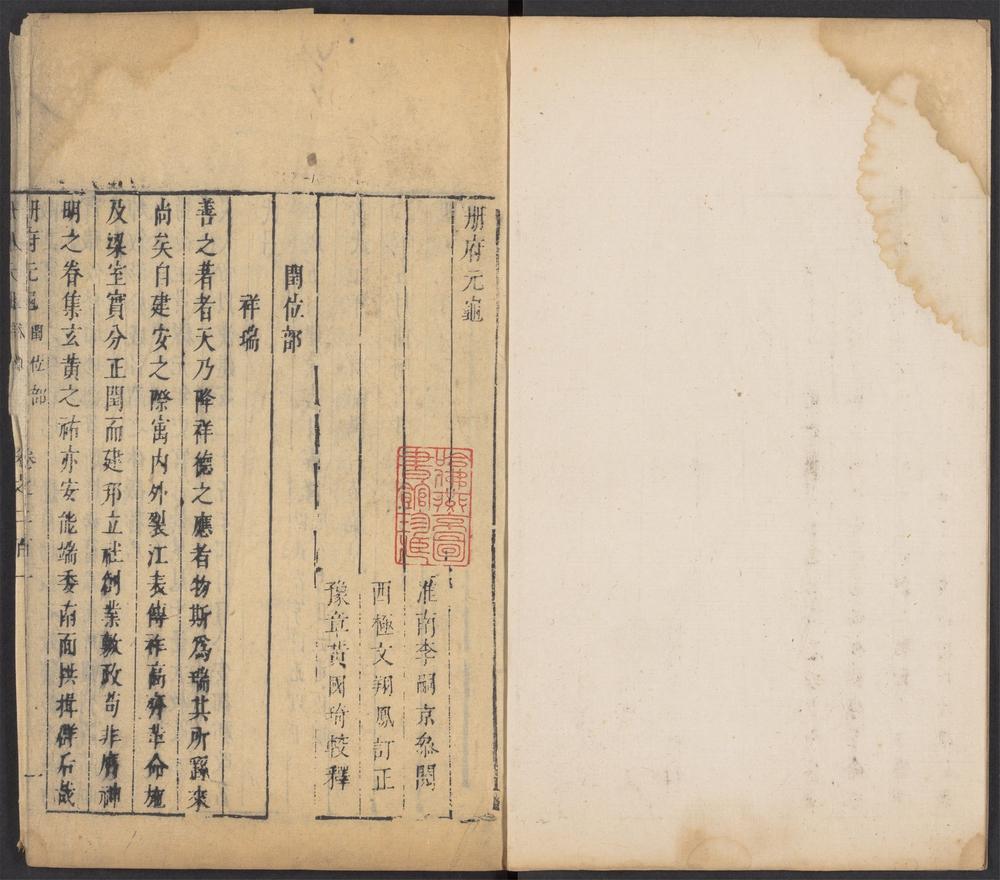 册府元龜
淮南李嗣京叅閱
西極文翔鳳訂正
豫章黃國琦較釋
閏位部
祥瑞
善之著者天乃降祥德之應者物斯為瑞其所繇來
尚矣自建安之際㝢內外裂江表傳祚高齊革命施
及梁室實分正閏而建邦立社創業敷政苟非膺神
明之眷集玄黃之祐亦安能端委南面拱揖群后哉
册府元龜 閏位部 卷之二百一 一
哈佛燕京圖書館珍藏